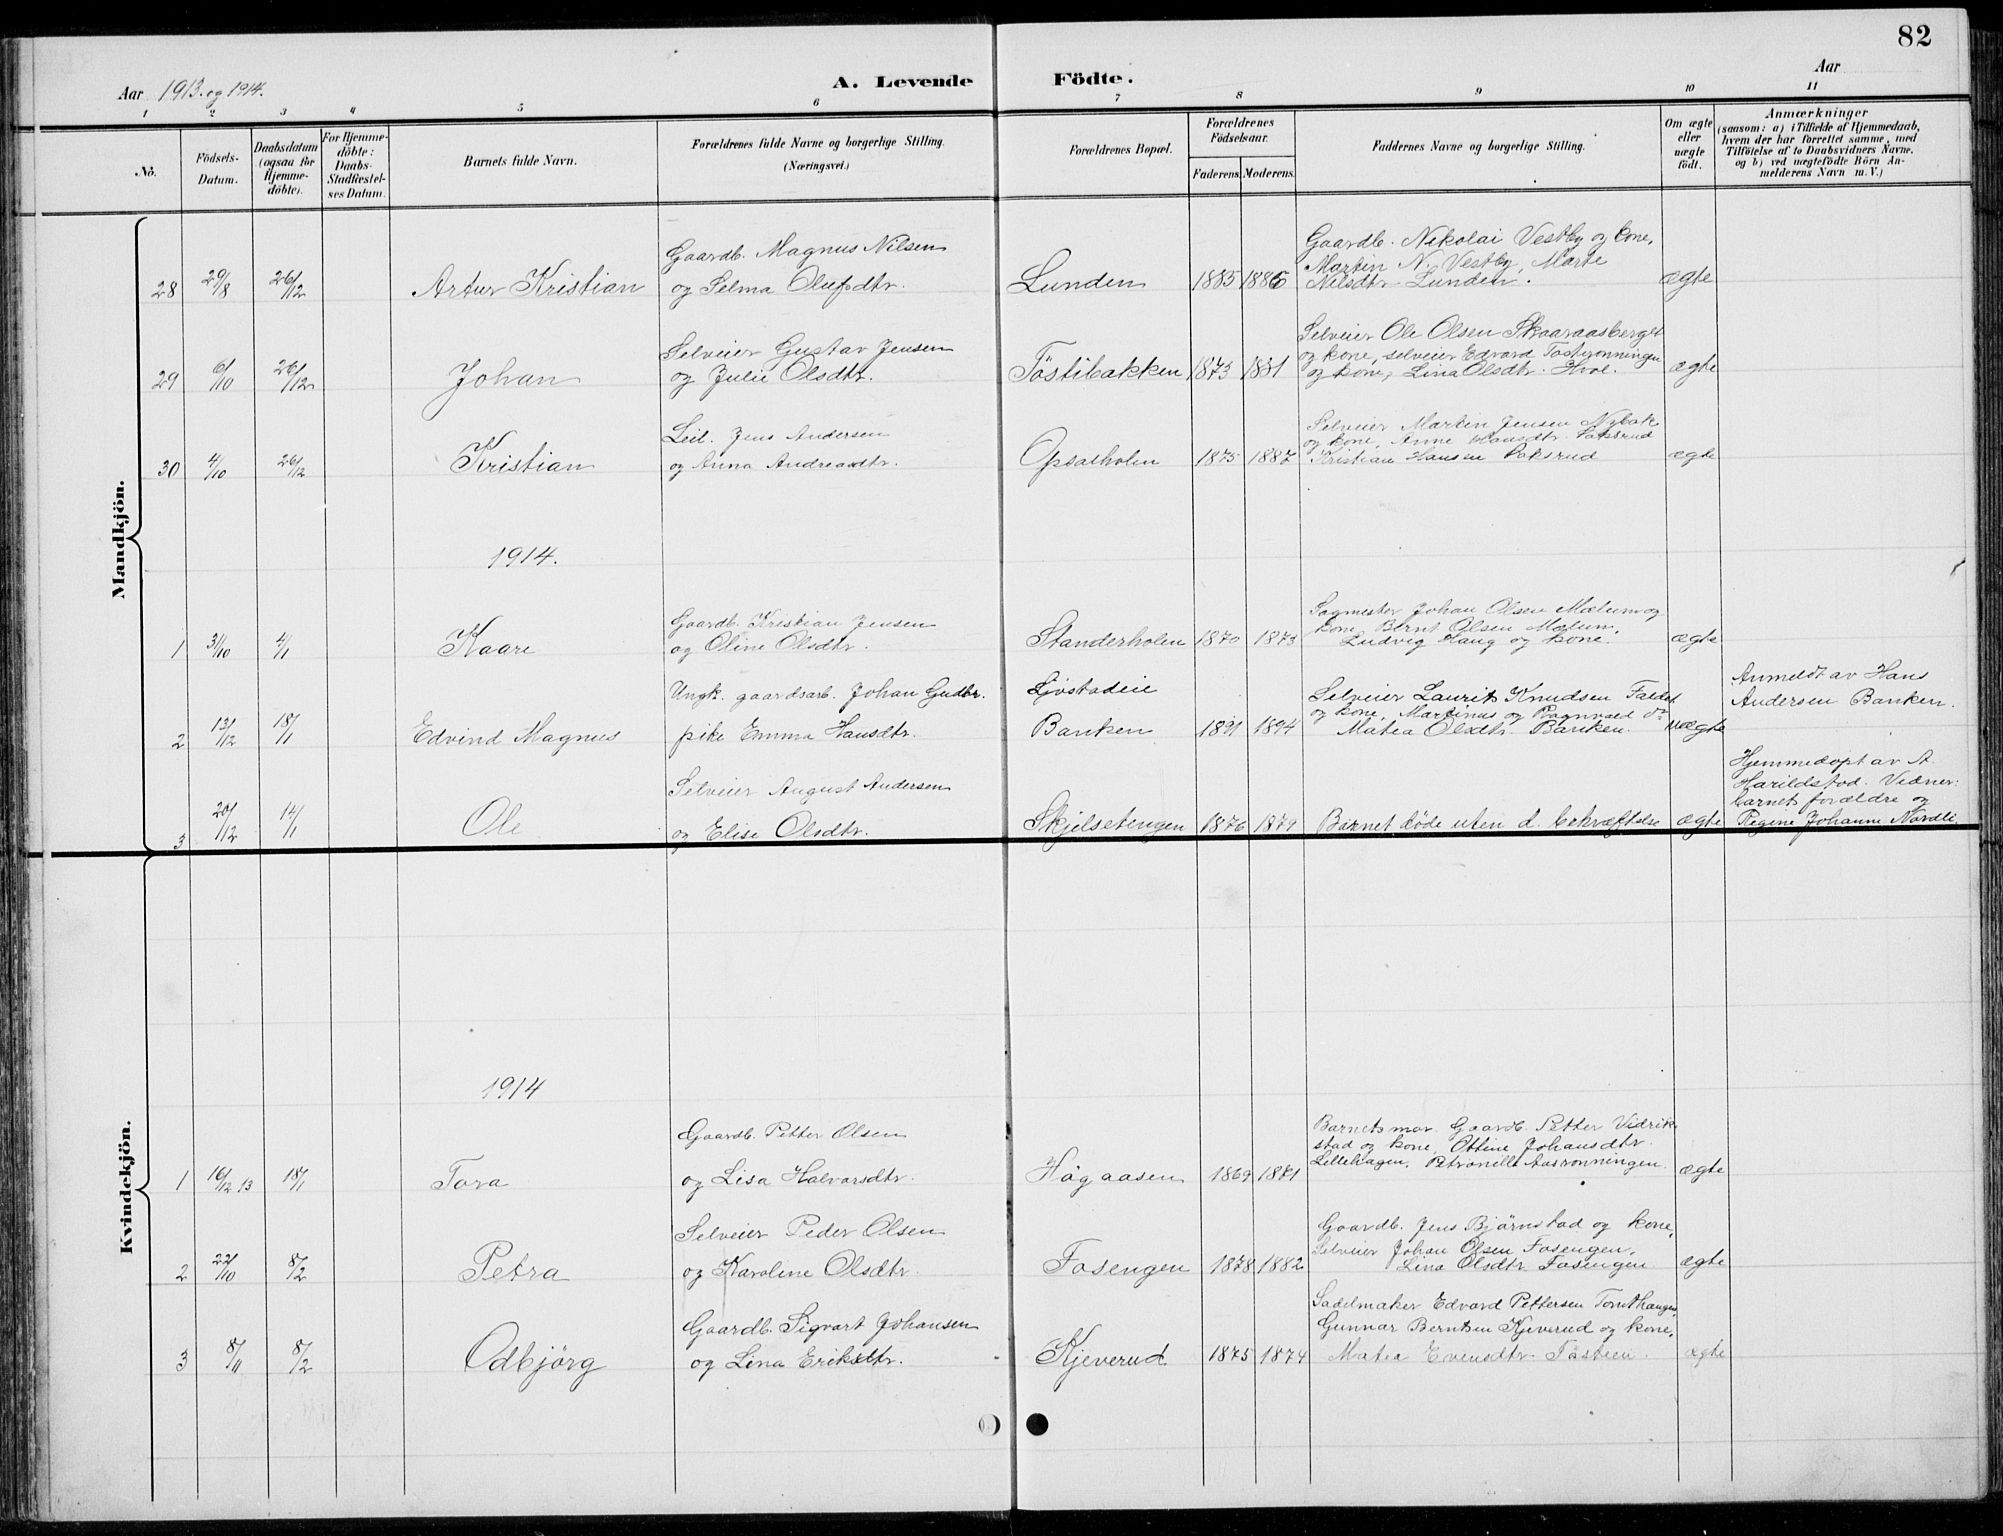 82
Aar 1913 og 1914.
A. Levende Födte.
Aar
1 2 3 4 5 6 7 8 9 10 11
No.
Födsels-Datum.
Daabsdatum (ogsaa for Hjemme-döbte).
For Hjemme-döbte: Daabs-Stadfæstel-ses Datum.
Barnets fulde Navn.
Forældrenes fulde Navne og borgerlige Stilling. (Næringsvei.)
Forældrenes Bopæl.
Forældrenes Födselsaar.
Faderens. Moderens.
Faddernes Navne og borgerlige Stilling.
Om ægte eller uægte födt.
Anmærkninger
(saasom: a) i Tilfælde af Hjemmedaab, hvem der har forrettet samme, med Tilföielse af to Daabsvidners Navne. og b) ved uægtefödte Börn An-melderens Navn m. V.)
Mandkjön.
Gaardb. Magnus Nilsen
Gaardb. Nikolai Vestby og kone,
Martin N. Vestby, Marte
28 29/8 26/12 Artur Kristian og Selma Olufsdtr. Lunden 1885 1886 Nilsdtr. Lunden. ægte
Selveier Gustav Jensen
Selveier Ole Olsen Skaaraasberget
og kone, selveier Edvard Tosterönningen
29 6/10 26/12 Johan og Julie Olsdtr. Töstibakken 1873 1881 og kone, Lina Olsdtr. Hvel. ægte
Leil. Jens Andersen
Selveier Martin Jensen Nybak
og kone, Anne Hansdtr. Faksrud
30 4/10 26/12 Kristian og Anna Andreasdtr. Opsalholen 1875 1887 Kristian Hansen Faksrud ægte
1914.
Gaardb. Kristian Jensen
Sagmester Johan Olsen Mælum og
kone, Bernt Olsen Mælum,
1 31/10 4/1 Kaare og Oline Olsdtr. Standerholen 1870 1873 Ludvig Haug og kone. ægte
Ungk. gaardsarb. Johan Gudbr.
Sjöstadeie
Selveier Laurits Knudsen Faldet
og kone, Martinus og Ragnvald do
Anmeldt av Hans
Andersen Banken.
2 13/12 18/1 Edvind Magnus pike Emma Hansdtr. Banken 1891 1894 Matea Olsdtr. Banken. uægte
Selveier August Andersen
Hjemmedøpt av A.
Harildstad. Vidner:
barnets forældre og
3 20/12 14/1 Ole og Elise Olsdtr. Skjelsetengen 1876 1879 Barnet døde uten d. bekræftelse ægte Regine Johanne Nordli
Kvindekjön.
1914
Gaardb. Petter Olsen
Barnets mor. Gaardb. Petter Vidrik-
stad og kone, Ottine Johansdtr.
1 16/12 13 18/1 Tora og Lisa Halvorsdtr. Högaasen 1869 1871 Lillehagen, Petronille Aasrönningen ægte
Selveier Peder Olsen
Gaardb. Jens Bjørnstad og kone,
Selveier Johan Olsen Fosengen,
2 22/10 8/2 Petra og Karoline Olsdtr. Fosengen 1878 1882 Lina Olsdtr. Fosengen ægte
Gaardb. Sigvart Johansen
Sadelmaker Edvard Pettersen Tomthaugen,
Gunnar Berntsen Kjeverud og kone,
3 8/11 8/2 Odbjörg og Lina Eriksdtr. Kjeverud 1875 1874 Matea Evensdtr. Tösteien ægte